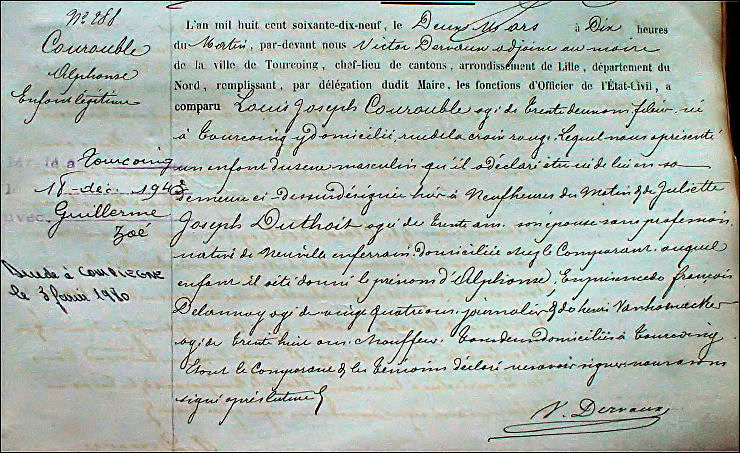 N° 288
Courouble
Alphonse
Enfant légitime
Marié à Tourcoing
le 18 - déc. 1943
avec Guillerme
Zoé
à Compiègne
le 3 1980
L'an mil huit cent soixante-dix-neuf, le Deux Mars à Dix heures
du Matin, par-devant nous Victor Dervaux adjoint au maire
de la ville de Tourcoing, chef-lieu de cantons, arrondissement de Lille, département du
Nord, remplissant, par délégation dudit Maire, les fonctions d'Officier de l'État-Civil, a
comparu Louis Joseph Courouble agé de trente deux ans fileur, né
à Tourcoing y domicilié, rue de la croix rouge. Lequel nous a présenté
un enfant du sexe masculin qu'il a déclaré être né de lui en sa
demeure ci-dessus désignée hier à Neuf heures du Matin & de Juliette
Joseph Duthoit agé de trente ans son épouse sans profession
native de Neuville en ferrain. domiciliée chez le Comparant. auquel
enfant il a été donné le prénom d'Alphonse. En présence de françois
Delannoy agé de vingt quatre ans. journalier & de henri
agé de trente huit ans. chauffeur. Tous deux domiciliés à Tourcoing.
Et ont le Comparant & les témoins déclaré ne savoir signer nous avons
signé après lecture
V. Dervaux